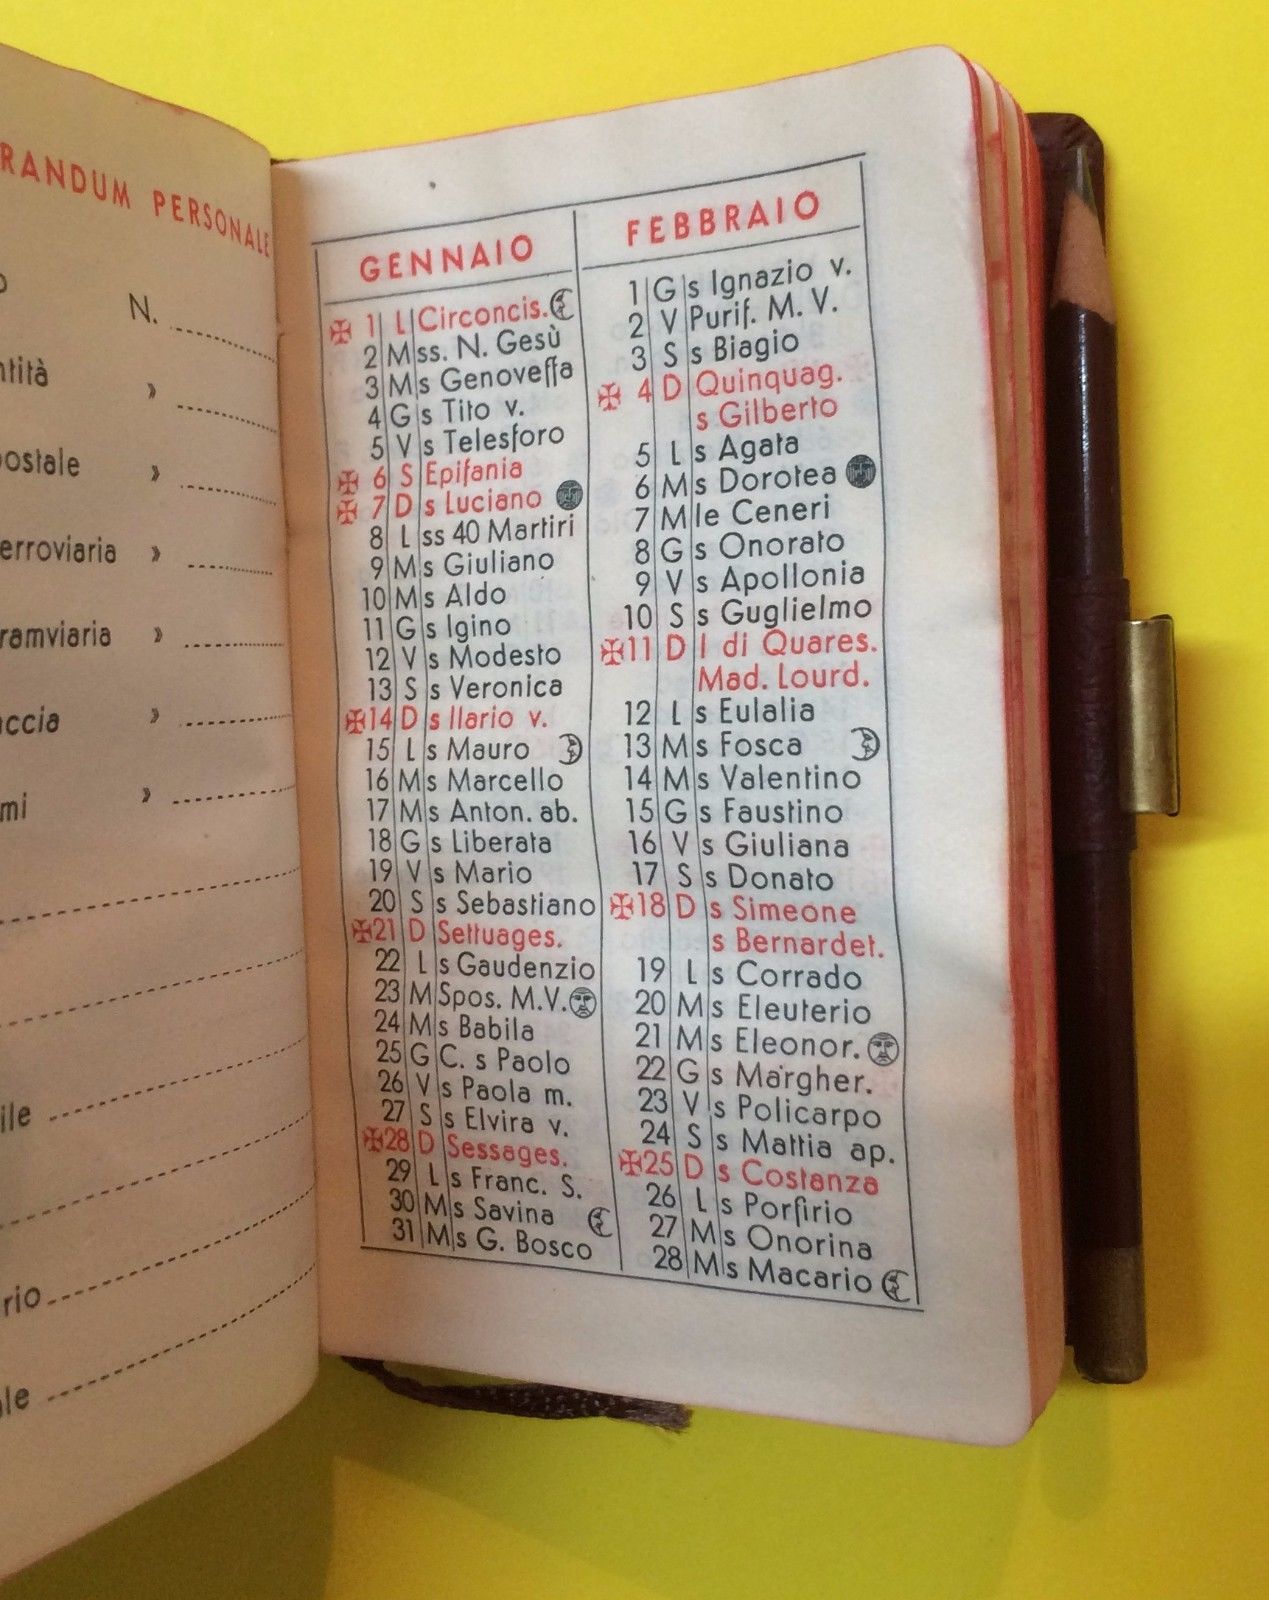 RANDUM PERSONALE
N.
ntità »
postale »
erroviaria »
ramviaria »
accia »
mi »
ile
rio
ale
GENNAIO
1 L Circoncis.
2 M ss. N. Gesù
3 M s Genoveffa
4 G s Tito v.
5 V s Telesforo
6 S Epifania
7 D s Luciano
8 L ss 40 Martiri
9 M s Giuliano
10 M s Aldo
11 G s Igino
12 V s Modesto
13 S s Veronica
14 D s Ilario v.
15 L s Mauro
16 M s Marcello
17 M s Anton. ab.
18 G s Liberata
19 V s Mario
20 S s Sebastiano
21 D Settuages.
22 L s Gaudenzio
23 M Spos. M.V.
24 M s Babila
25 G C. s Paolo
26 V s Paola m.
27 S s Elvira v.
28 D Sessages.
29 L s Franc. S.
30 M s Savina
31 M s G. Bosco
FEBBRAIO
1 G s Ignazio v.
2 V Purif. M. V.
3 S s Biagio
4 D Quinquag.
s Gilberto
5 L s Agata
6 M s Dorotea
7 M le Ceneri
8 G s Onorato
9 V s Apollonia
10 S s Guglielmo
11 D I di Quares.
Mad. Lourd.
12 L s Eulalia
13 M s Fosca
14 M s Valentino
15 G s Faustino
16 V s Giuliana
17 S s Donato
18 D s Simeone
s Bernardet.
19 L s Corrado
20 M s Eleuterio
21 M s Eleonor.
22 G s Margher.
23 V s Policarpo
24 S s Mattia ap.
25 D s Costanza
26 L s Porfirio
27 M s Onorina
28 M s Macario